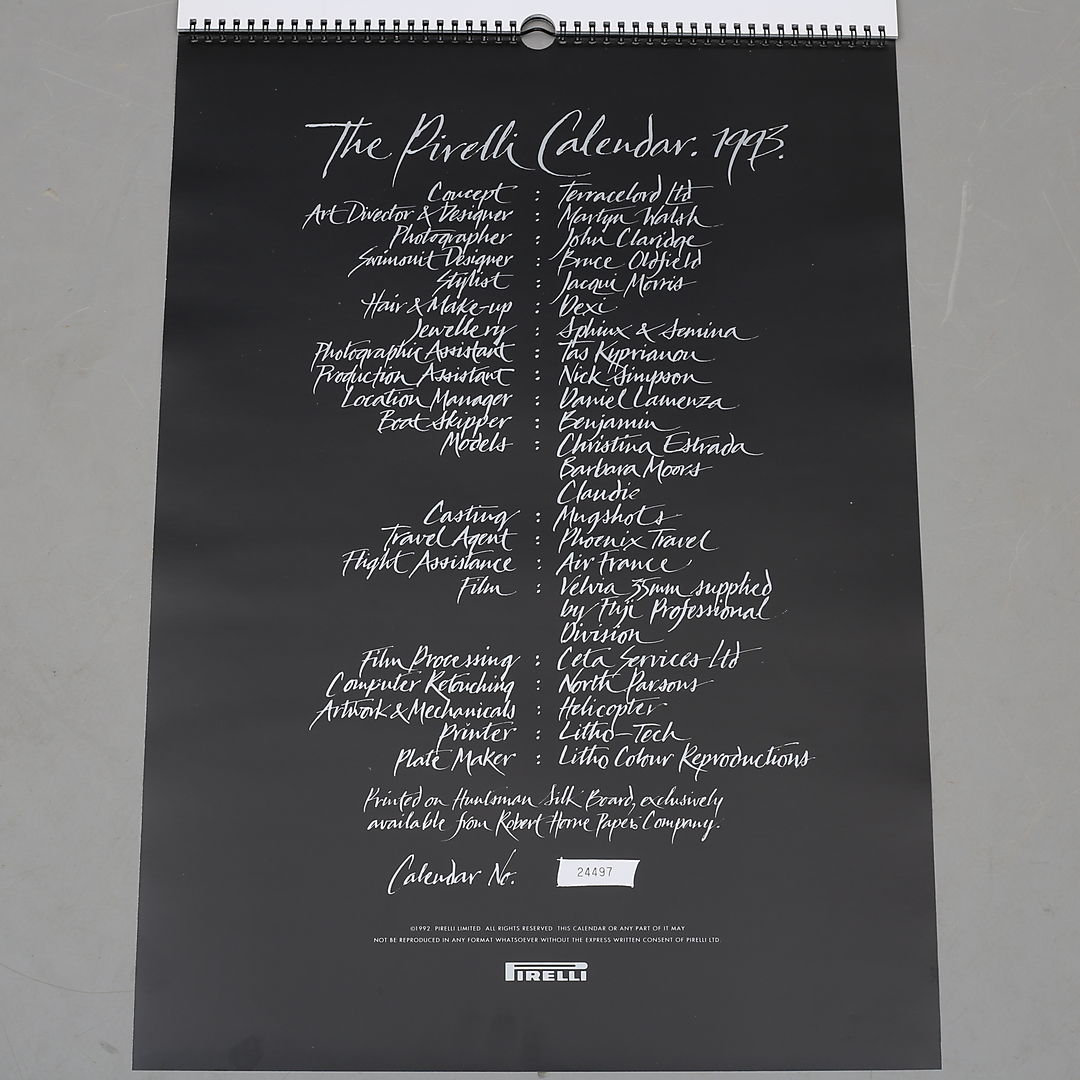 The Pirelli Calendar. 1993.
Concept : Terracelord Ltd
Art Director & Designer : Martyn Walsh
Photographer : John Claridge
Swimsuit Designer : Bruce Oldfield
Stylist : Jacqui Morris
Hair & Make-up : Dexi
Jewellery : Sphinx & Semina
Photographic Assistant : Tas Kyprianou
Production Assistant : Nick Simpson
Location Manager : Daniel Lamenza
Boat Skipper : Benjamin
Models : Christina Estrada
Barbara Moors
Claudie
Casting : Mugshots
Travel Agent : Phoenix Travel
Flight Assistance : Air France
Film : Velvia 35mm supplied
by Fuji Professional
Division
Film Processing : Ceta Services Ltd
Computer Retouching : North Parsons
Artwork & Mechanicals : Helicopter
Printer : Litho-Tech
Plate Maker : Litho Colour Reproductions
Printed on Huntsman Silk Board, exclusively
available from Robert Horne Paper Company.
Calendar No. 24497
©1992 PIRELLI LIMITED. ALL RIGHTS RESERVED. THIS CALENDAR OR ANY PART OF IT MAY
NOT BE REPRODUCED IN ANY FORMAT WHATSOEVER WITHOUT THE EXPRESS WRITTEN CONSENT OF PIRELLI LTD.
PIRELLI